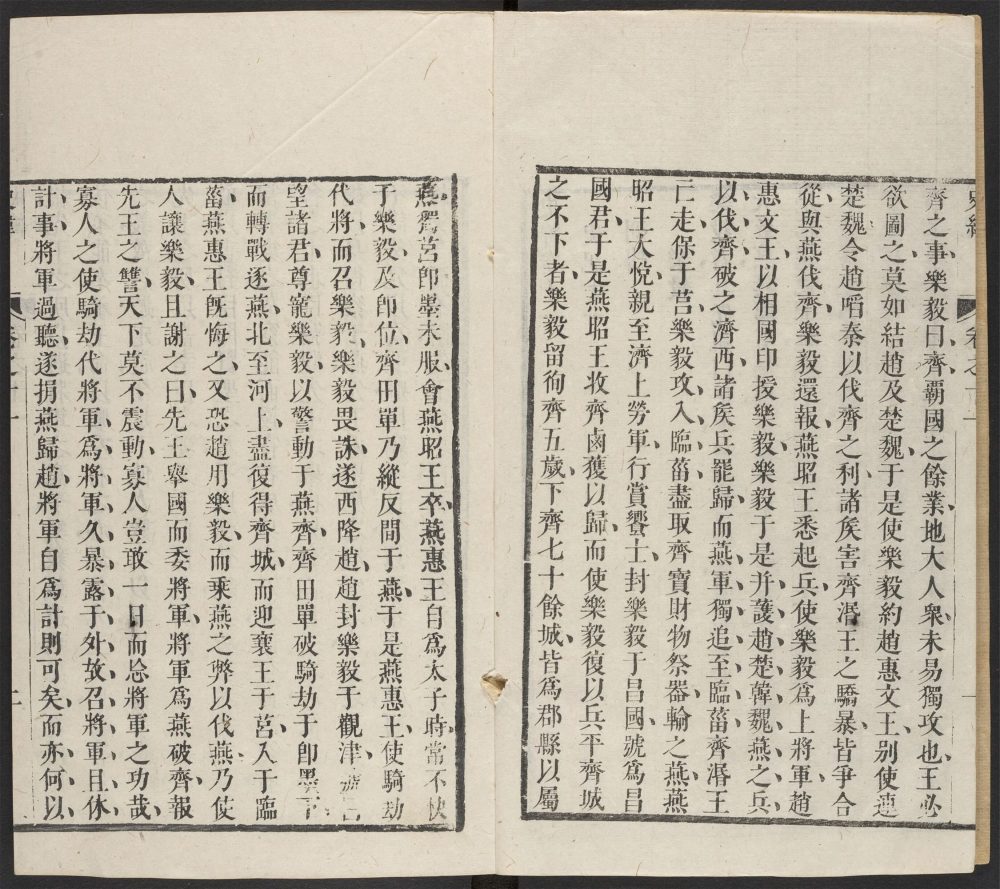 齊之事樂毅曰齊霸國之餘業地大人衆未易獨攻也王必
欲圖之莫如結趙及楚魏于是使樂毅約趙惠文王别使連
楚魏令趙嚪秦以伐齊之利諸矦害齊湣王之驕暴皆爭合
從與燕伐齊樂毅還報燕昭王悉起兵使樂毅爲上將軍趙
惠文王以相國印授樂毅樂毅于是并護趙楚韓魏燕之兵
以伐齊破之濟西諸矦兵罷歸而燕軍獨追至臨菑齊湣王
已走保于莒樂毅攻入臨菑盡取齊寶財物祭器輸之燕燕
昭王大悅親至濟上勞軍行賞饗士封樂毅于昌國號爲昌
國君于是燕昭王收齊鹵獲以歸而使樂毅復以兵平齊城
之不下者樂毅留徇齊五歲下齊七十餘城皆爲郡縣以屬
燕獨莒卽墨未服會燕昭王卒燕惠王自爲太子時常不快
于樂毅及卽位齊田單乃縱反間于燕于是燕惠王使騎劫
代將而召樂毅樂毅畏誅遂西降趙趙封樂毅于觀津
望諸君尊寵樂毅以警動于燕齊齊田單破騎劫于卽墨下
而轉戰逐燕北至河上盡復得齊城而迎襄王于莒入于臨
菑燕惠王旣悔之又恐趙用樂毅而乘燕之弊以伐燕乃使
人讓樂毅且謝之曰先王舉國而委將軍將軍爲燕破齊報
先王之讐天下莫不震動寡人豈敢一日而忘將軍之功哉
寡人之使騎劫代將軍爲將軍久暴露于外故召將軍且休
計事將軍過聽遂捐燕歸趙將軍自爲計則可矣而亦何以